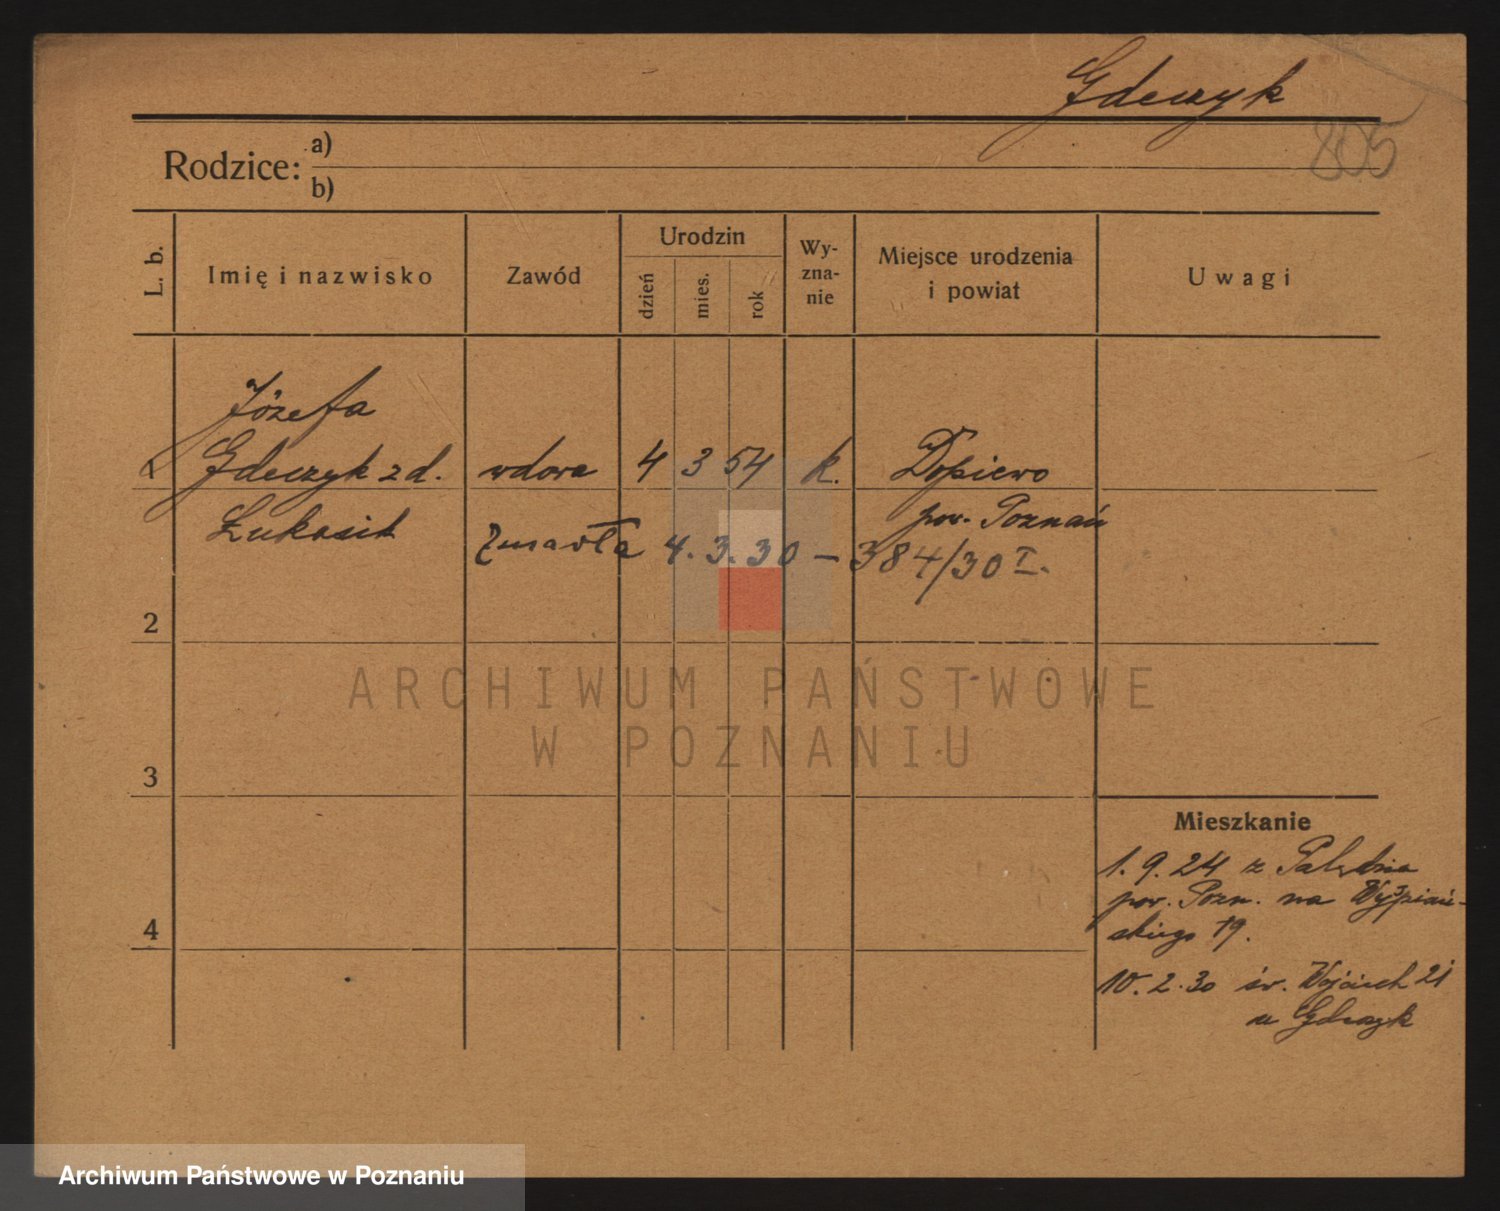 Gdeczyk
805
Rodzice: a)
b)
L. b.
Imię i nazwisko
Zawód
Urodzin
dzień
mies.
rok
Wy-
zna-
nie
Miejsce urodzenia
i powiat
Uwagi
Józefa
1 Gdeczyk z d. wdowa 4 3 54 k. Dopiewo
Łukasik pow. Poznań
Zmarła 4.3.30 – 384/30 I.
2
3
4
Mieszkanie
1. 9. 24 z Palędzia
pow. Pozn. na Wyspiań-
skiego 19.
10. 2. 30 św. Wojciech 21
u Gdeczyk
ARCHIWUM PAŃSTWOWE
W POZNANIU
Archiwum Państwowe w Poznaniu